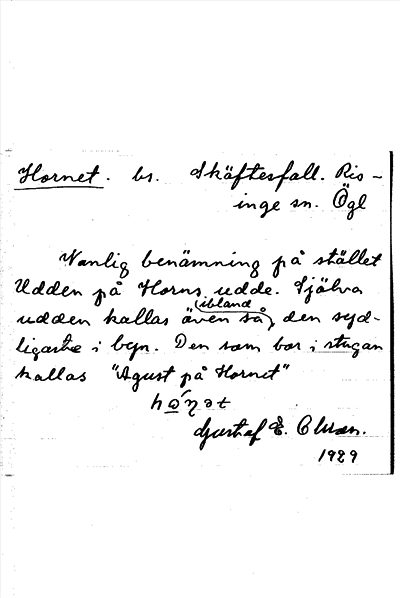 Hornet. bs. Skäftesfall. Ris-
inge sn. Ögl
Vanlig benämning på stället
Udden på Horns udde. Själva
ibland
udden kallas även så, den syd-
ligaste i byn. Den som bor i stugan
kallas "Agust på Hornet"
Gustaf E.
1929